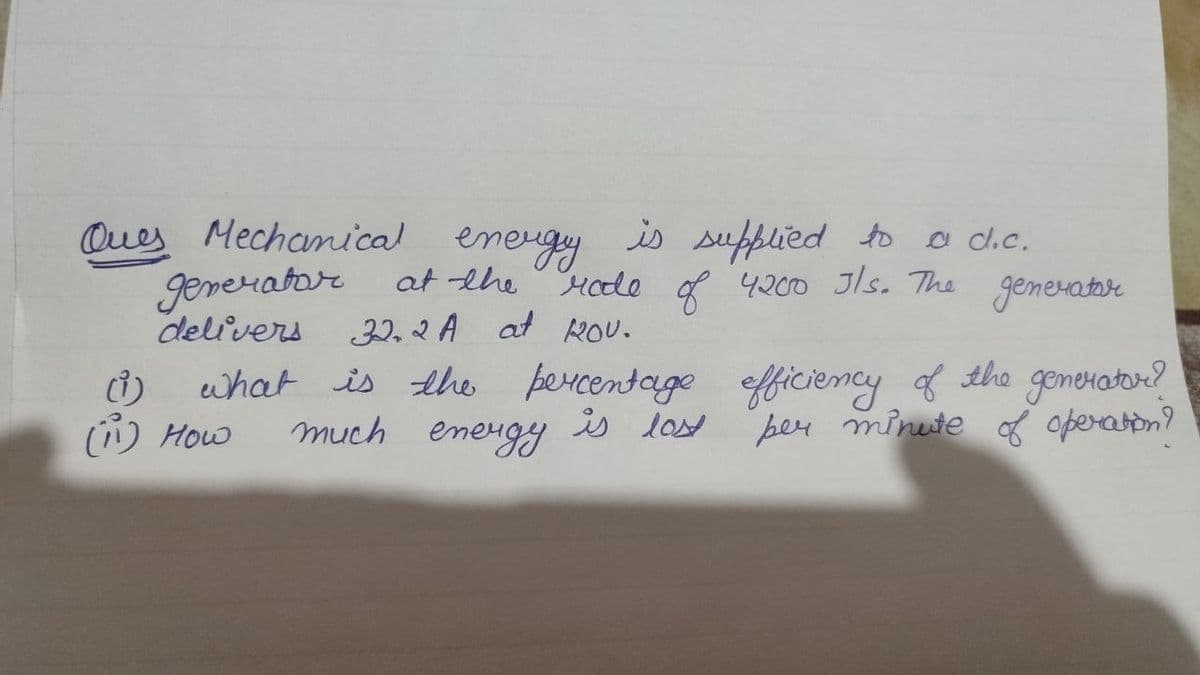 Ques Mechanical energy is supplied to a d.c.
generator at the rate of 4200 J/s. The generator
delivers 32.2 A at 120V.
(i) what is the percentage efficiency of the generator?
(ii) How much energy is lost per minute of operation?